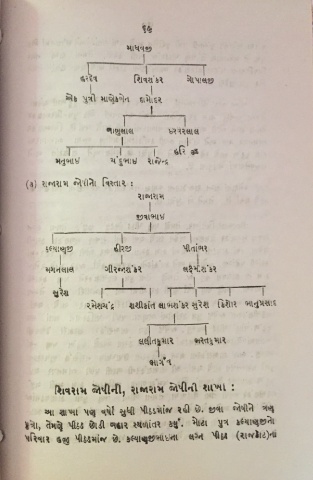 ૬૭
માધવજી
હરદેવ શિવશંકર ગોપાલજી
એક પુત્રી માણેકબેન દામોદર
બાબુલાલ કરસરલાલ
મનુભાઈ ચંદુભાઈ રાજેન્દ્ર હરિ
(૪) રાજારામ જોષીનો વિસ્તાર :
રાજારામ
જીવાભાઈ
કલ્યાણજી હીરજી પીતાંબર
મગનલાલ ગીરજાશંકર લક્ષ્મીશંકર
સુરેશ રમેશચંદ્ર શશીકાંત લાભશંકર સુરેશ કિશોર ભાનુપ્રસાદ
લલીતકુમાર ભરતકુમાર
ભાર્ગવ
શિવરામ જોષીની, રાજારામ જોષીની શાખા :
આ શાખા પણ વર્ષો સુધી પીઠડમાંજ રહી છે. જીવા જોષીને ત્રણ
પુત્રો, તેમણે પીઠડ છોડી બહાર સ્થળાંતર કર્યું. મોટા પુત્ર કલ્યાણજીનો
પરિવાર હજી પીઠડમાંજ છે. કલ્યાણજીભાઈના લગ્ન પીઠડ (રાજકોટ)ના